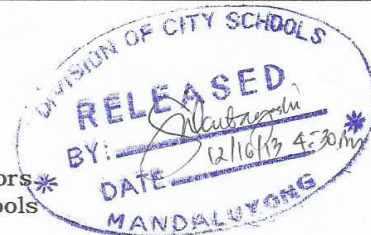 DIVISION OF CITY SCHOOLS
RELEASED
BY:
DATE 12/16/13 4:30 PM
MANDALUYONG
ors
ools